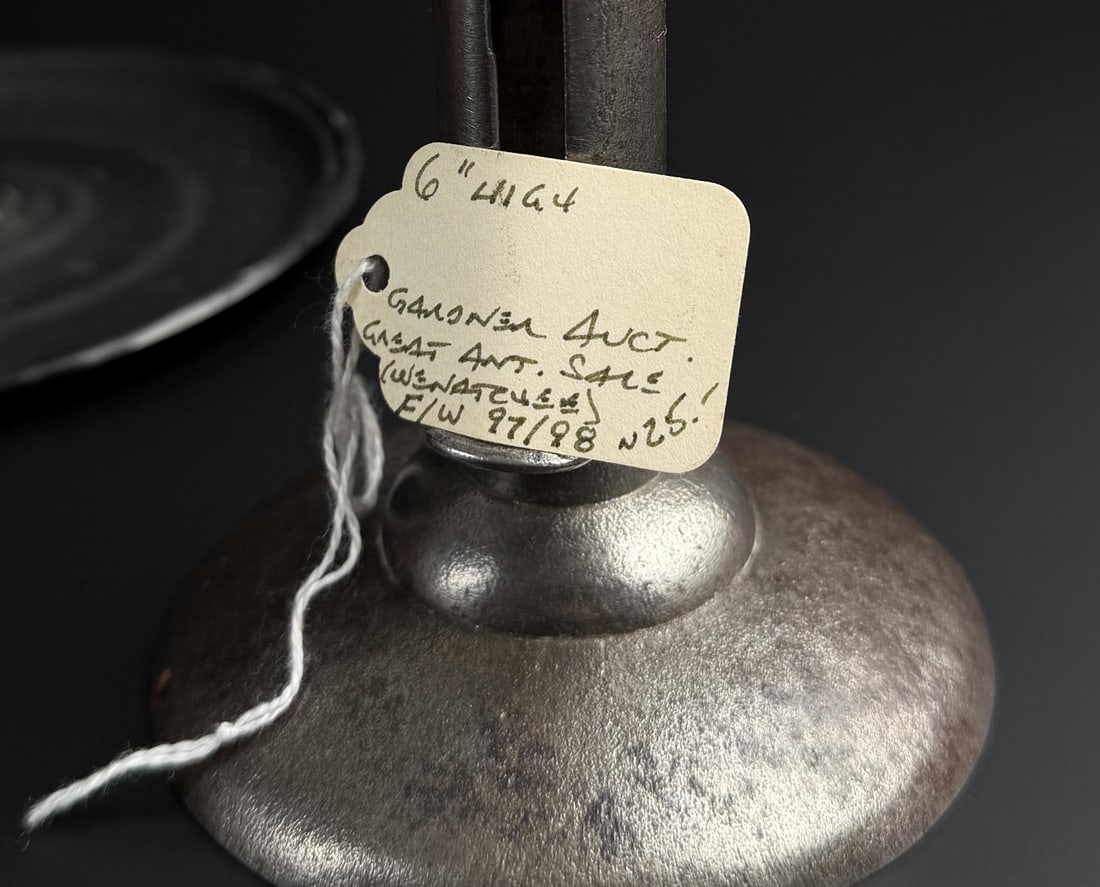 6" HIGH
GARDNER AUCT.
GREAT ANT. SALE
(WENATCHEE)
F/W 97/98 N26!